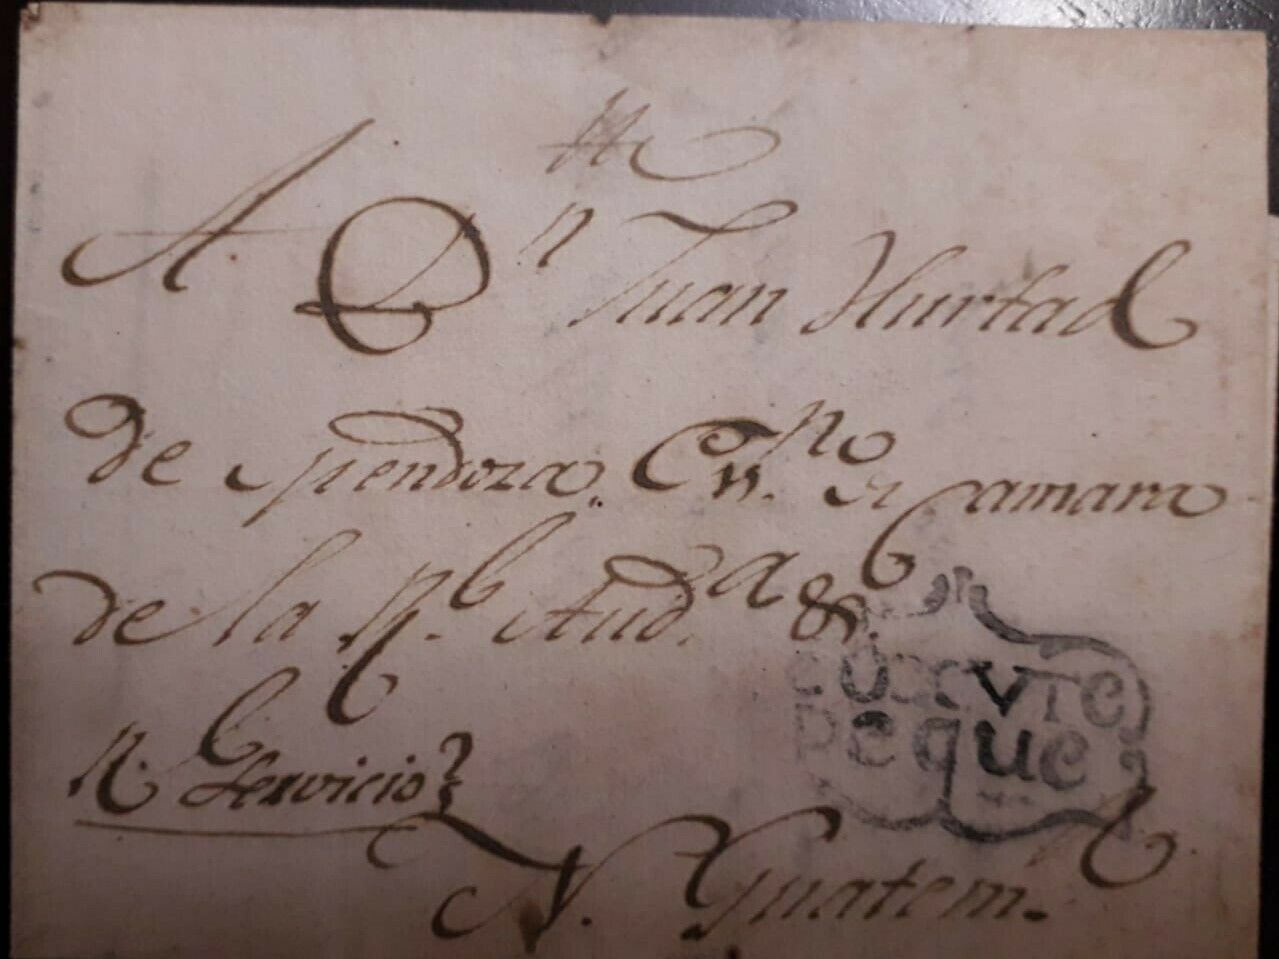 A Dn Juan Hurtad
de Mendoza. Essno de Camara
de la Rl. Auda &.
Rl Servicio
COXVTE
PEQUE
N. Guatema.